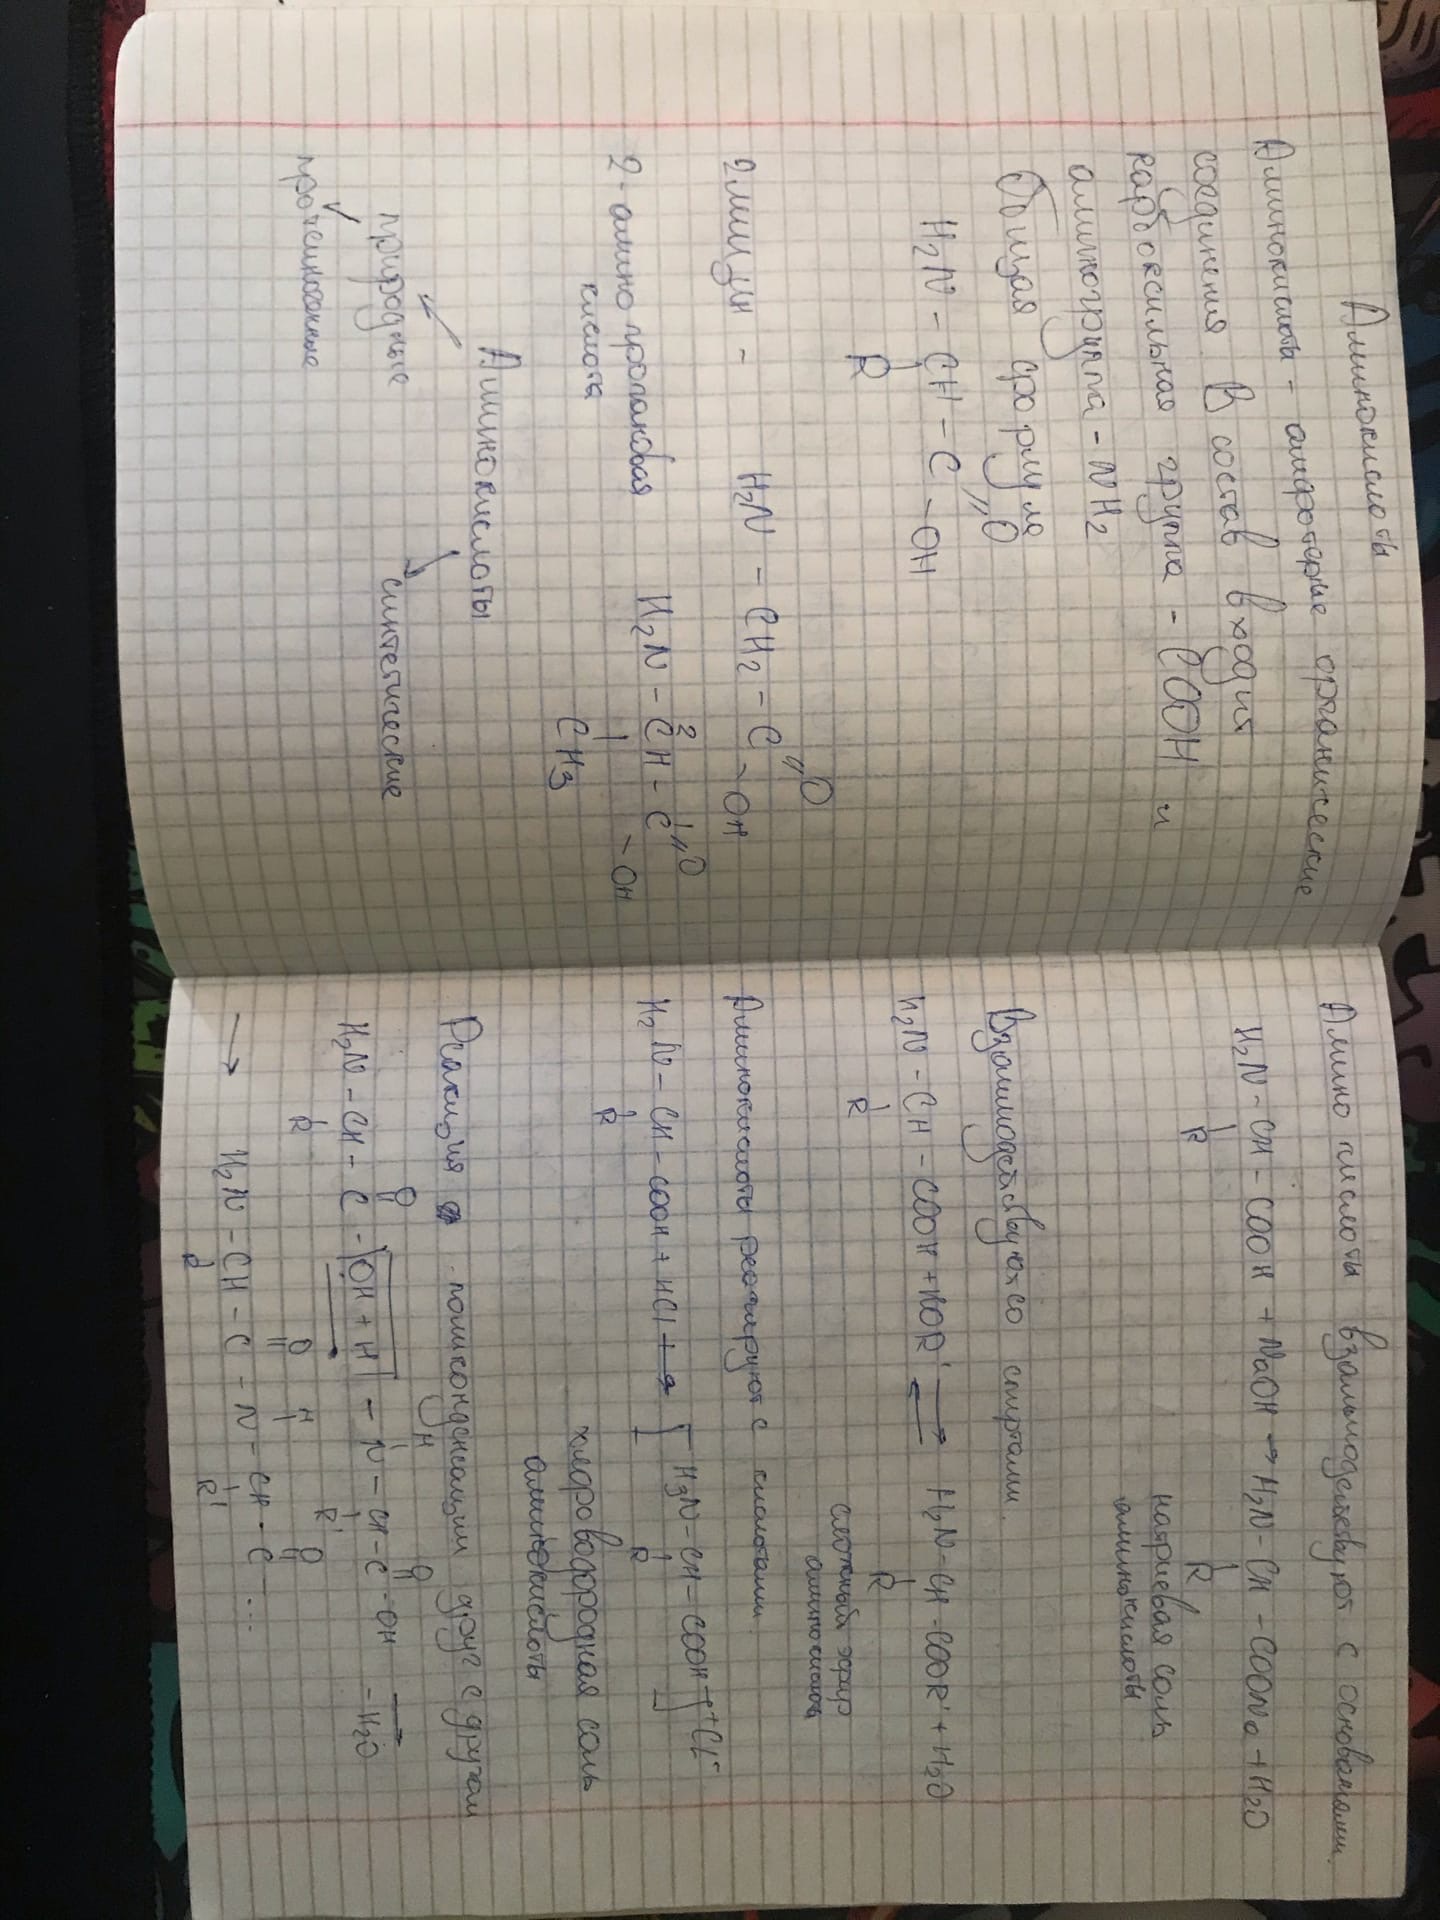 Аминокислоты
Аминокислоты - амфотерные органические
соединения. В состав входит
карбоксильная группа - COOH и
аминогруппа - NH2
Общая формула
O
H2N - CH - C
- OH
R
O
глицин - H2N - CH2 - C
- OH
2 1 O
H2N - CH - C
2-аминопропановая
- OH
кислота
CH3
Аминокислоты
природные синтетические
протеиногенные
Амино кислоты взаимодействуют с основаниями.
H2N - CH - COOH + NaOH → H2N - CH - COONa + H2O
R R
натриевая соль
аминокислоты
Взаимодействуют со спиртами.
H2N - CH - COOH + HOR' ⇄ H2N - CH - COOR' + H2O
R R
сложный эфир
аминокислоты
Аминокислоты реагируют с кислотами.
H2N - CH - COOH + HCl → [H3N - CH - COOH]+Cl-
R R
хлороводородная соль
аминокислоты
Реакция поликонденсации друг с другом
O H O
H2N - CH - C - OH + H - N - CH - C - OH →
- H2O
R R'
O H O
→ H2N - CH - C - N - CH - C - ...
R R'